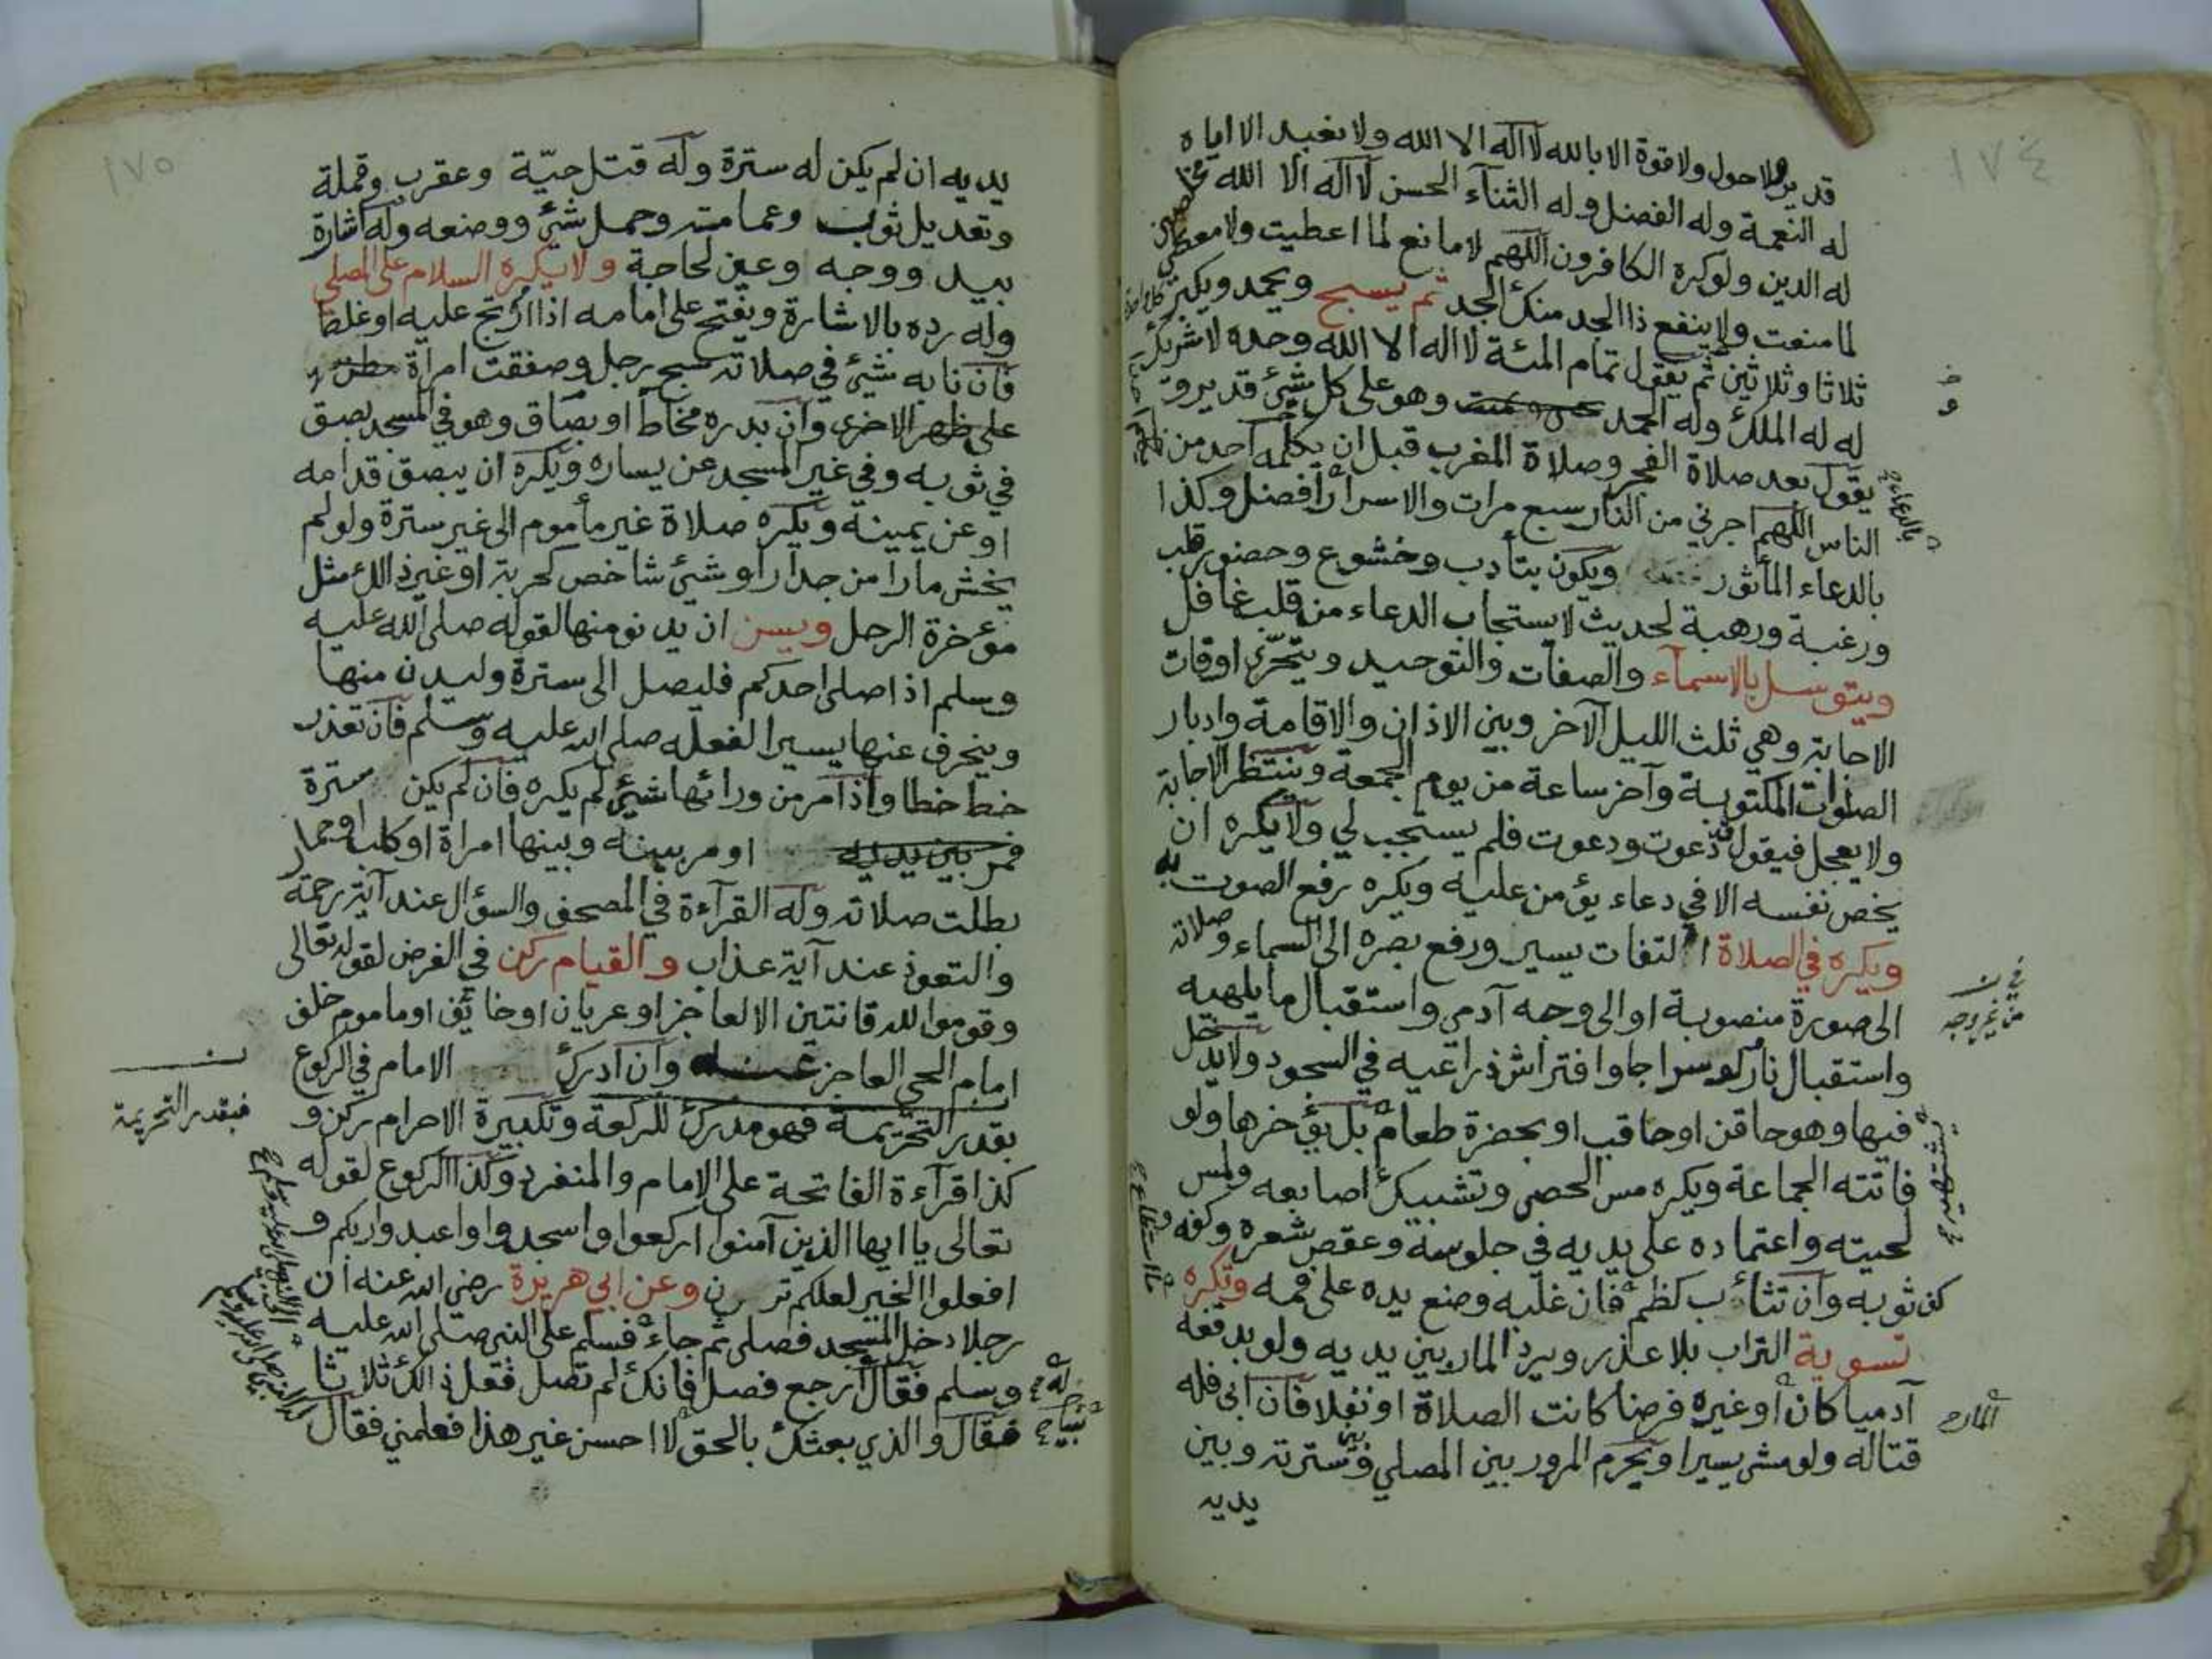 ١٧٤
قدير ولا حول ولا قوة الا بالله لا اله الا الله ولا نعبد الا اياه
له النعمة وله الفضل وله الثناء الحسن لا اله الا الله مخلصين
له الدين ولو كره الكافرون اللهم لا مانع لما اعطيت ولا معطي
لما منعت ولا ينفع ذا الجد منك الجد ثم يسبح ويحمد ويكبر كل واحدة
ثلاثا وثلاثين ثم يقول تمام المئة لا اله الا الله وحده لا شريك
له له الملك وله الحمد وهو على كل شيئ قدير و
يقول بعد صلاة الفجر وصلاة المغرب قبل ان يكلمه احد من
الناس اللهم اجرني من النار سبع مرات والاسرار أفضل وكذا
بالدعاء
بالدعاء المأثور ويكون بتأدب وخشوع وحضور قلب
ورغبة ورهبة لحديث لا يستجاب الدعاء من قلب غافل
ويتوسل بالاسماء والصفات والتوحيد ويتحرّى اوقات
الاجابة وهي ثلث الليل الآخر وبين الاذان والاقامة وادبار
الصلوات المكتوبة وآخر ساعة من يوم الجمعة وينتظر الاجابة
ولا يعجل فيقول دعوت ودعوت فلم يستجب لي ولا يكره ان
يخص نفسه الا في دعاء يؤمن عليه ويكره رفع الصوت به
ويكره في الصلاة التفات يسير ورفع بصره الى السماء وصلاته
الى صورة منصوبة او الى وجه آدمي واستقبال ما يلهيه
واستقبال نار ولو سراجا وافتراش ذراعيه في السجود ولا يدخل
فيها وهو حاقن او حاقب او بحضرة طعام بل يؤخرها ولو
فاتته الجماعة ويكره مس الحصى وتشبيك اصابعه ولمس
لحيته واعتماده على يديه في جلوسه وعقص شعره وكفه و
ما استطاع
كف ثوبه وان تثاءب كظم فان غلبه وضع يده على فمه ويكره
تسوية التراب بلا عذر ويرد المار بين يديه ولو بدفعه
المار
آدميا كان او غيره فرضا كانت الصلاة او نفلا فان ابى فله
قتاله ولو مشى يسيرا ويحرم المرور بين المصلي وسترته وبين
يديه
١٧٥
يديه ان لم يكن له سترة وله قتل حيّة وعقرب وقملة
وتعديل ثوب وعمامته وحمل شيئ ووضعه وله اشارة
بيد ووجه وعين لحاجة ولا يكره السلام على المصلي
وله رده بالاشارة ويفتح على امامه اذا ارتج عليه او غلط
فان نابه شيئ في صلاته سبح رجل وصفقت امراة
على ظهر الاخرى وان بدره مخاط او بصاق وهو في المسجد بصق
في ثوبه وفي غير المسجد عن يساره ويكره ان يبصق قدامه
او عن يمينه ويكره صلاة غير مأموم الى غير سترة ولو لم
يخش مارا من جدار او شيئ شاخص كحربة او غير ذلك مثل
موءخرة الرحل ويسن ان يدنو منها لقوله صلى الله عليه
وسلم اذا صلى احدكم فليصل الى سترة وليدن منها
وينحرف عنها يسيرا لفعله صلى الله عليه وسلم فان تعذر
خط خطا واذا مر من ورائها شيئ لم يكره فان لم يكن سترة
فمر بين يديه او مر بينه وبينها امراة او كلب او حمار
بطلت صلاته وله القراءة في المصحف والسؤال عند آية رحمة
والتعوذ عند آية عذاب والقيام ركن في الفرض لقوله تعالى
وقوموا لله قانتين الا لعاجز او عريان او خائف او ماموم خلف
امام الحي العاجز عنه وان ادرك الامام في الركوع
فبقدر التحريمة
بقدر التحريمة فهو مدرك للركعة وتكبيرة الاحرام ركن و
كذا قرآءة الفاتحة على الامام والمنفرد وكذا الركوع لقوله
تعالى يا ايها الذين آمنوا اركعوا واسجدوا واعبدوا ربكم و
افعلوا الخير لعلكم وعن ابي هريرة رضي الله عنه ان
رجلا دخل المسجد فصلى ثم جاء فسلم على النبي صلى الله عليه
وسلم فقال ارجع فصل فانك لم تصل فعل ذلك ثلاثا
فقال والذي بعثك بالحق لا احسن غير هذا فعلمني فقال